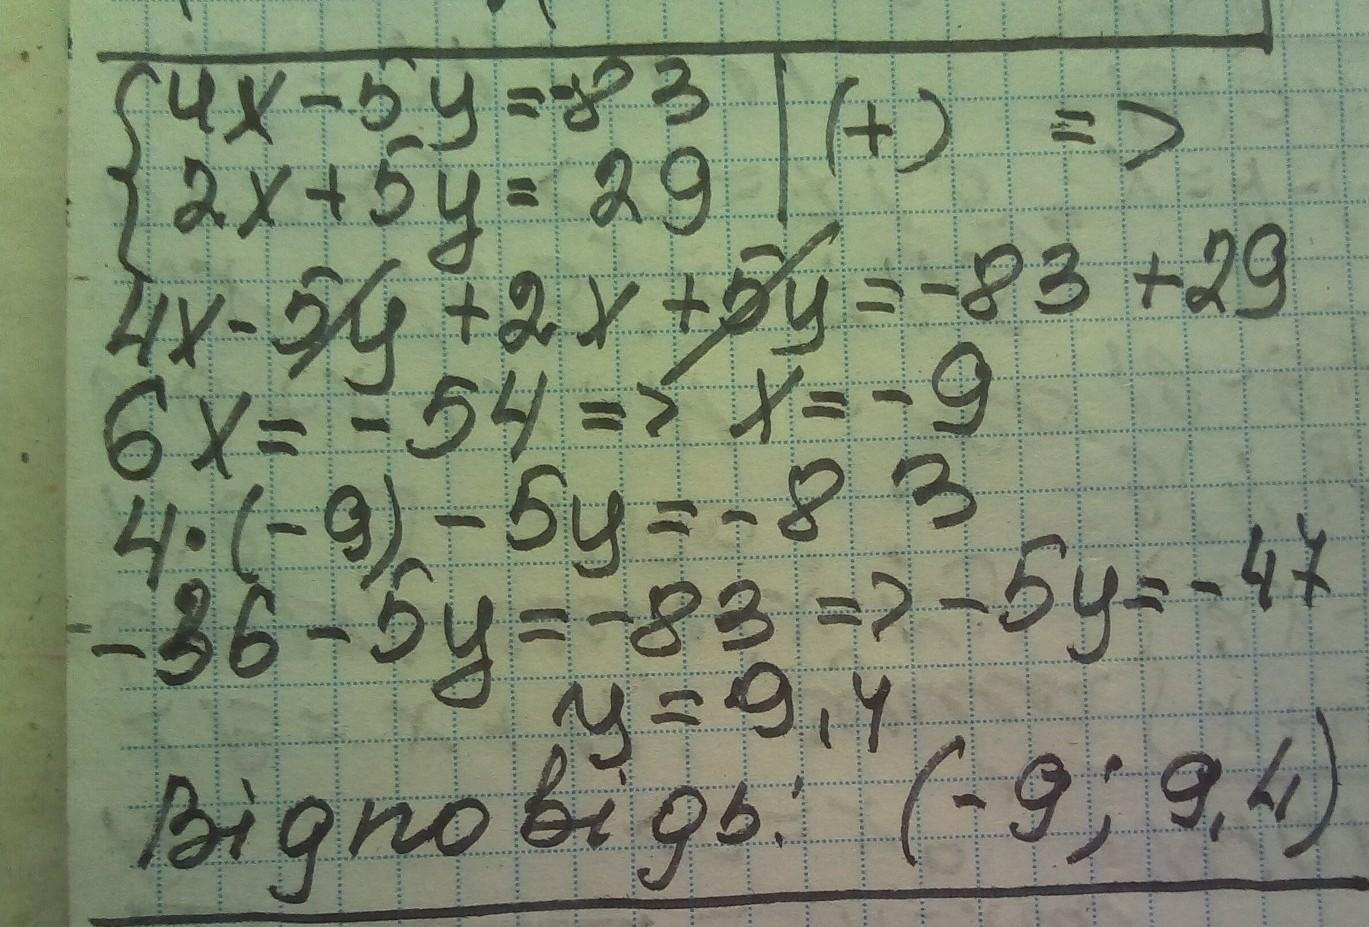 4x - 5y = -83 | (+) =>
2x + 5y = 29
4x - 5y + 2x + 5y = -83 + 29
6x = -54 => x = -9
4·(-9) - 5y = -83
-36 - 5y = -83 => -5y = -47
y = 9,4
Відповідь: (-9; 9,4)